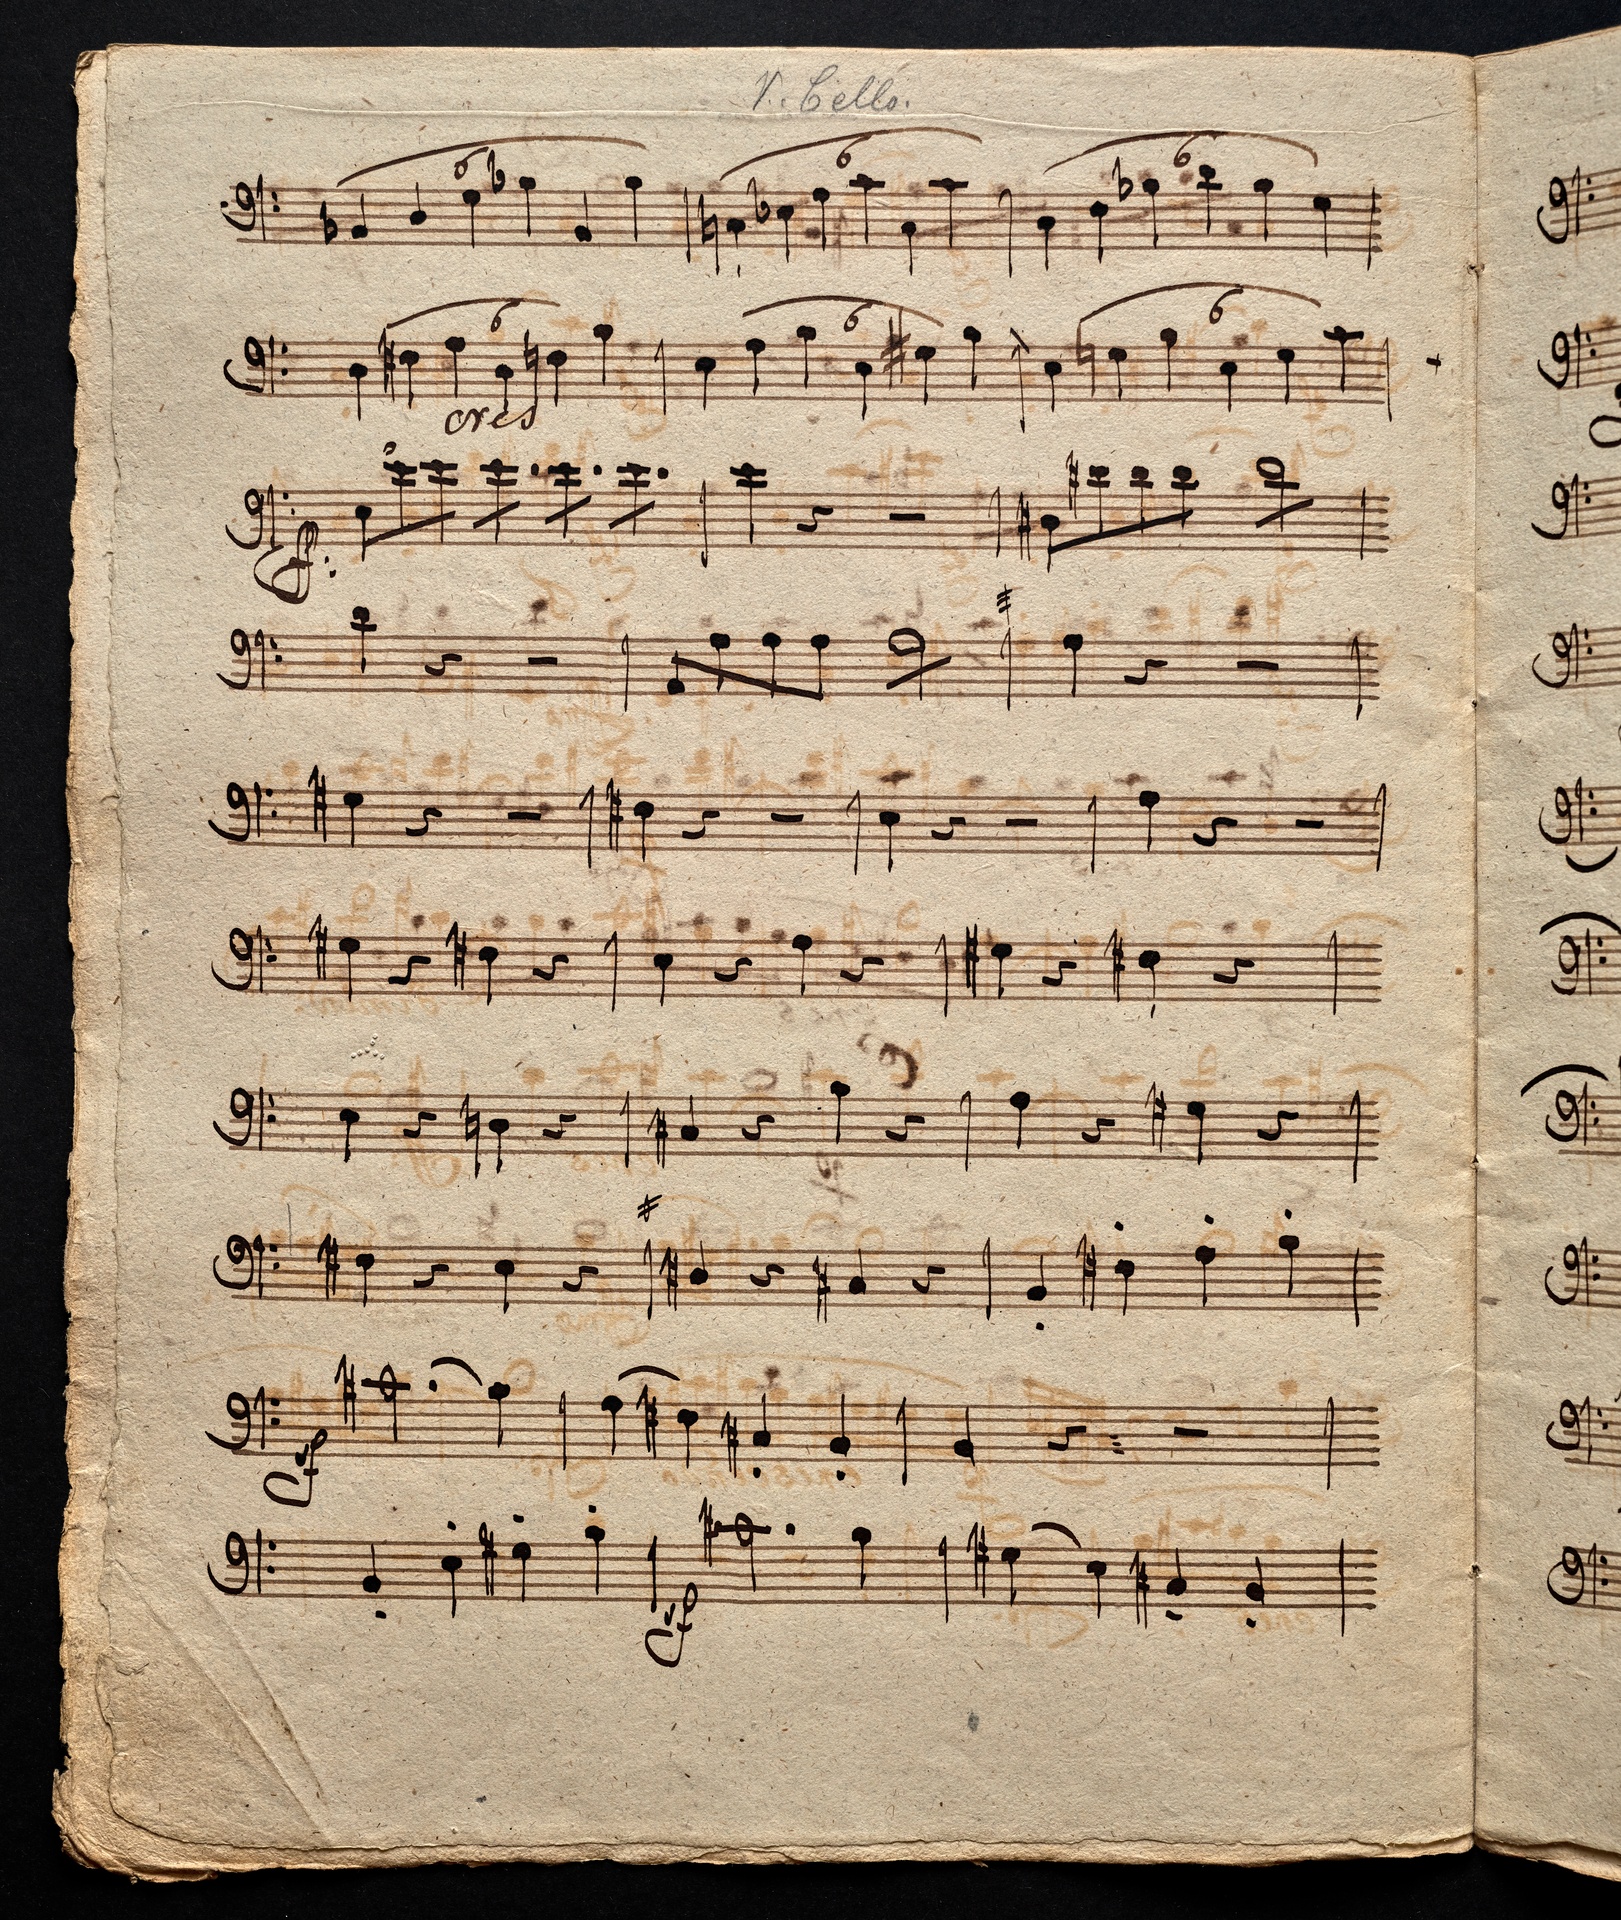 V. Cello.
6 6 6
6 6 6
cres
ff:
sf
sf